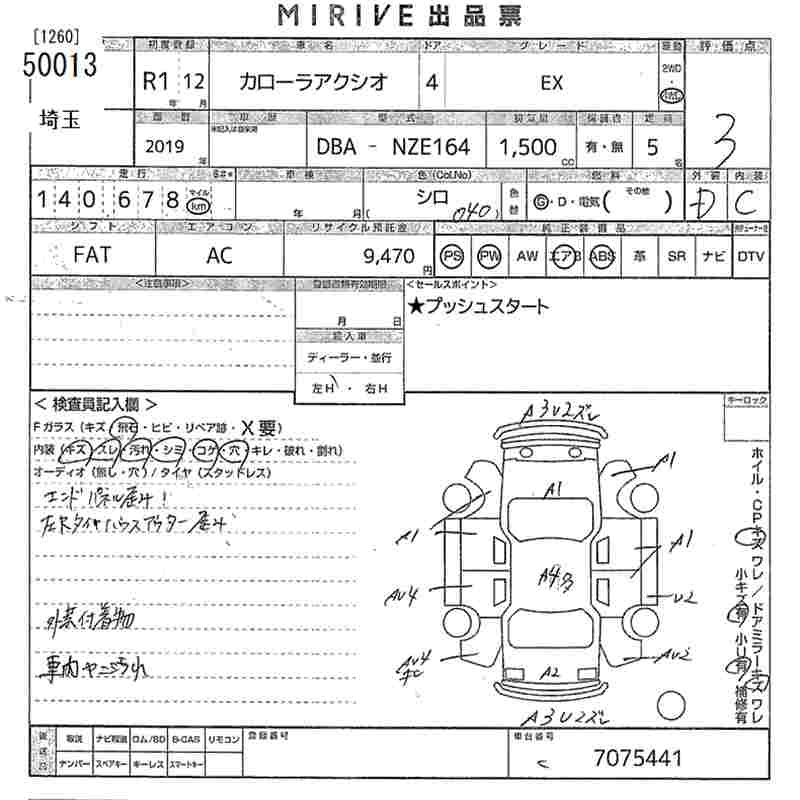 MIRIVE 出品票
[1260]
50013
埼玉
初度登録 車名 ドア グレード 駆動 評価点
R1 12 カローラアクシオ 4 EX 2WD・4WD
年 月
3
年式 車歴 型式 排気量 乗車定員
未記入は自家用
2019 年 DBA - NZE164 1,500 CC 有・無 5 名
走行 車検 色(Col.No) 燃料 外装 内装
140678 マイル km 年 月 シロ (040) 色替 G・D・電気( その他 ) D C
シフト エアコン リサイクル預託金 純正装備品
FAT AC 9,470 円 PS PW AW エアB ABS 革 SR ナビ DTV
<注意事項> <セールスポイント>
★プッシュスタート
月 日
輸入車
ディーラー・並行
左H ・ 右H
< 検査員記入欄 >
Fガラス (キズ・飛石・ヒビ・リペア跡・X要)
内装 (キズ・スレ・汚れ・シミ・コゲ・穴・キレ・破れ・割れ)
オーディオ (無し・穴) / タイヤ (スタッドレス)
エンドパネル歪み!
左Rタイヤハウスアウター歪み
外装付着物
車内ヤニ汚れ
キーロック
A3U2ズレ
A1
A1
A1
A1
A4多
AU4
U2
AU4
AU2
A2
A3U2ズレ
ホイル・CPキズ ワレ/ドアミラーキズ ワレ
小キズ有 小U有 補修有
後送品 取説 ナビ取説 ロム/SD B-CAS リモコン 登録番号 車台番号
ナンバー スペアキー キーレス スマートキー
7075441